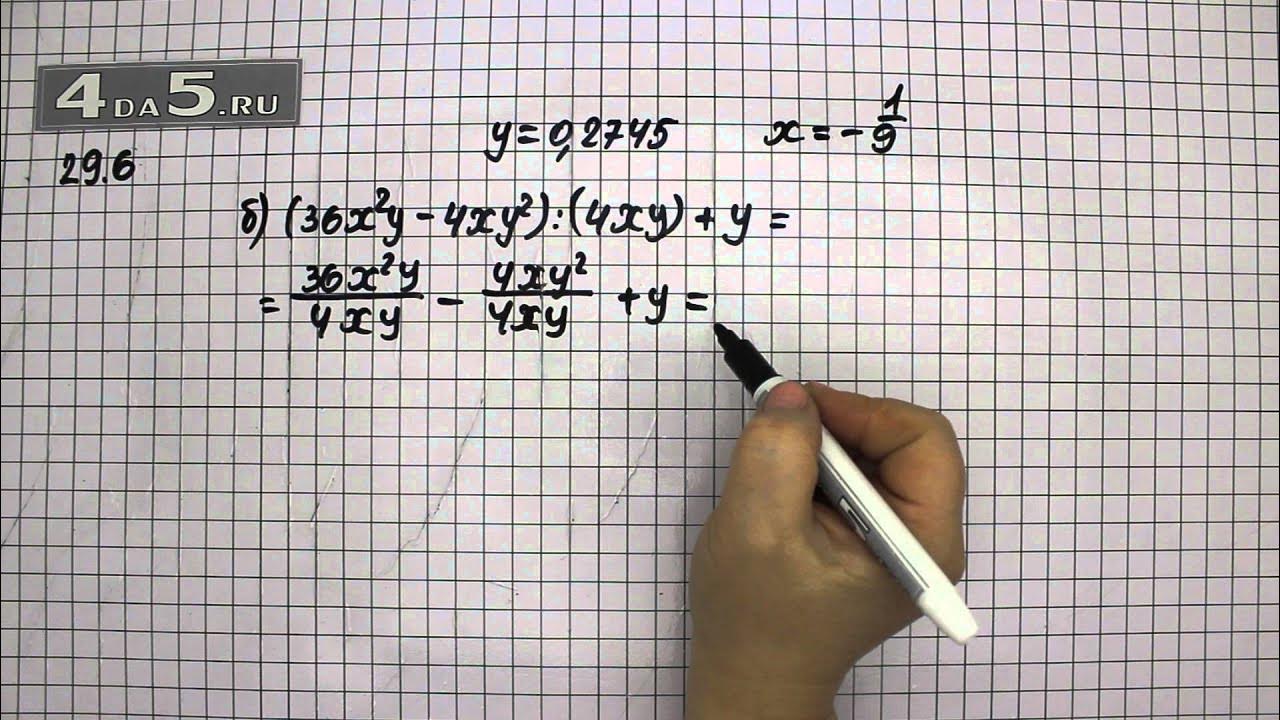 4DA5.RU
y = 0,2745 x = -1/9
29.6
б) (36x²y - 4xy²) : (4xy) + y =
= 36x²y/4xy - 4xy²/4xy + y =